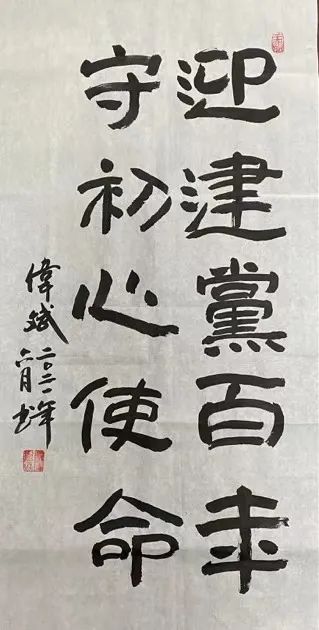 迎建黨百年
守初心使命
偉斌二〇二一年
六月书